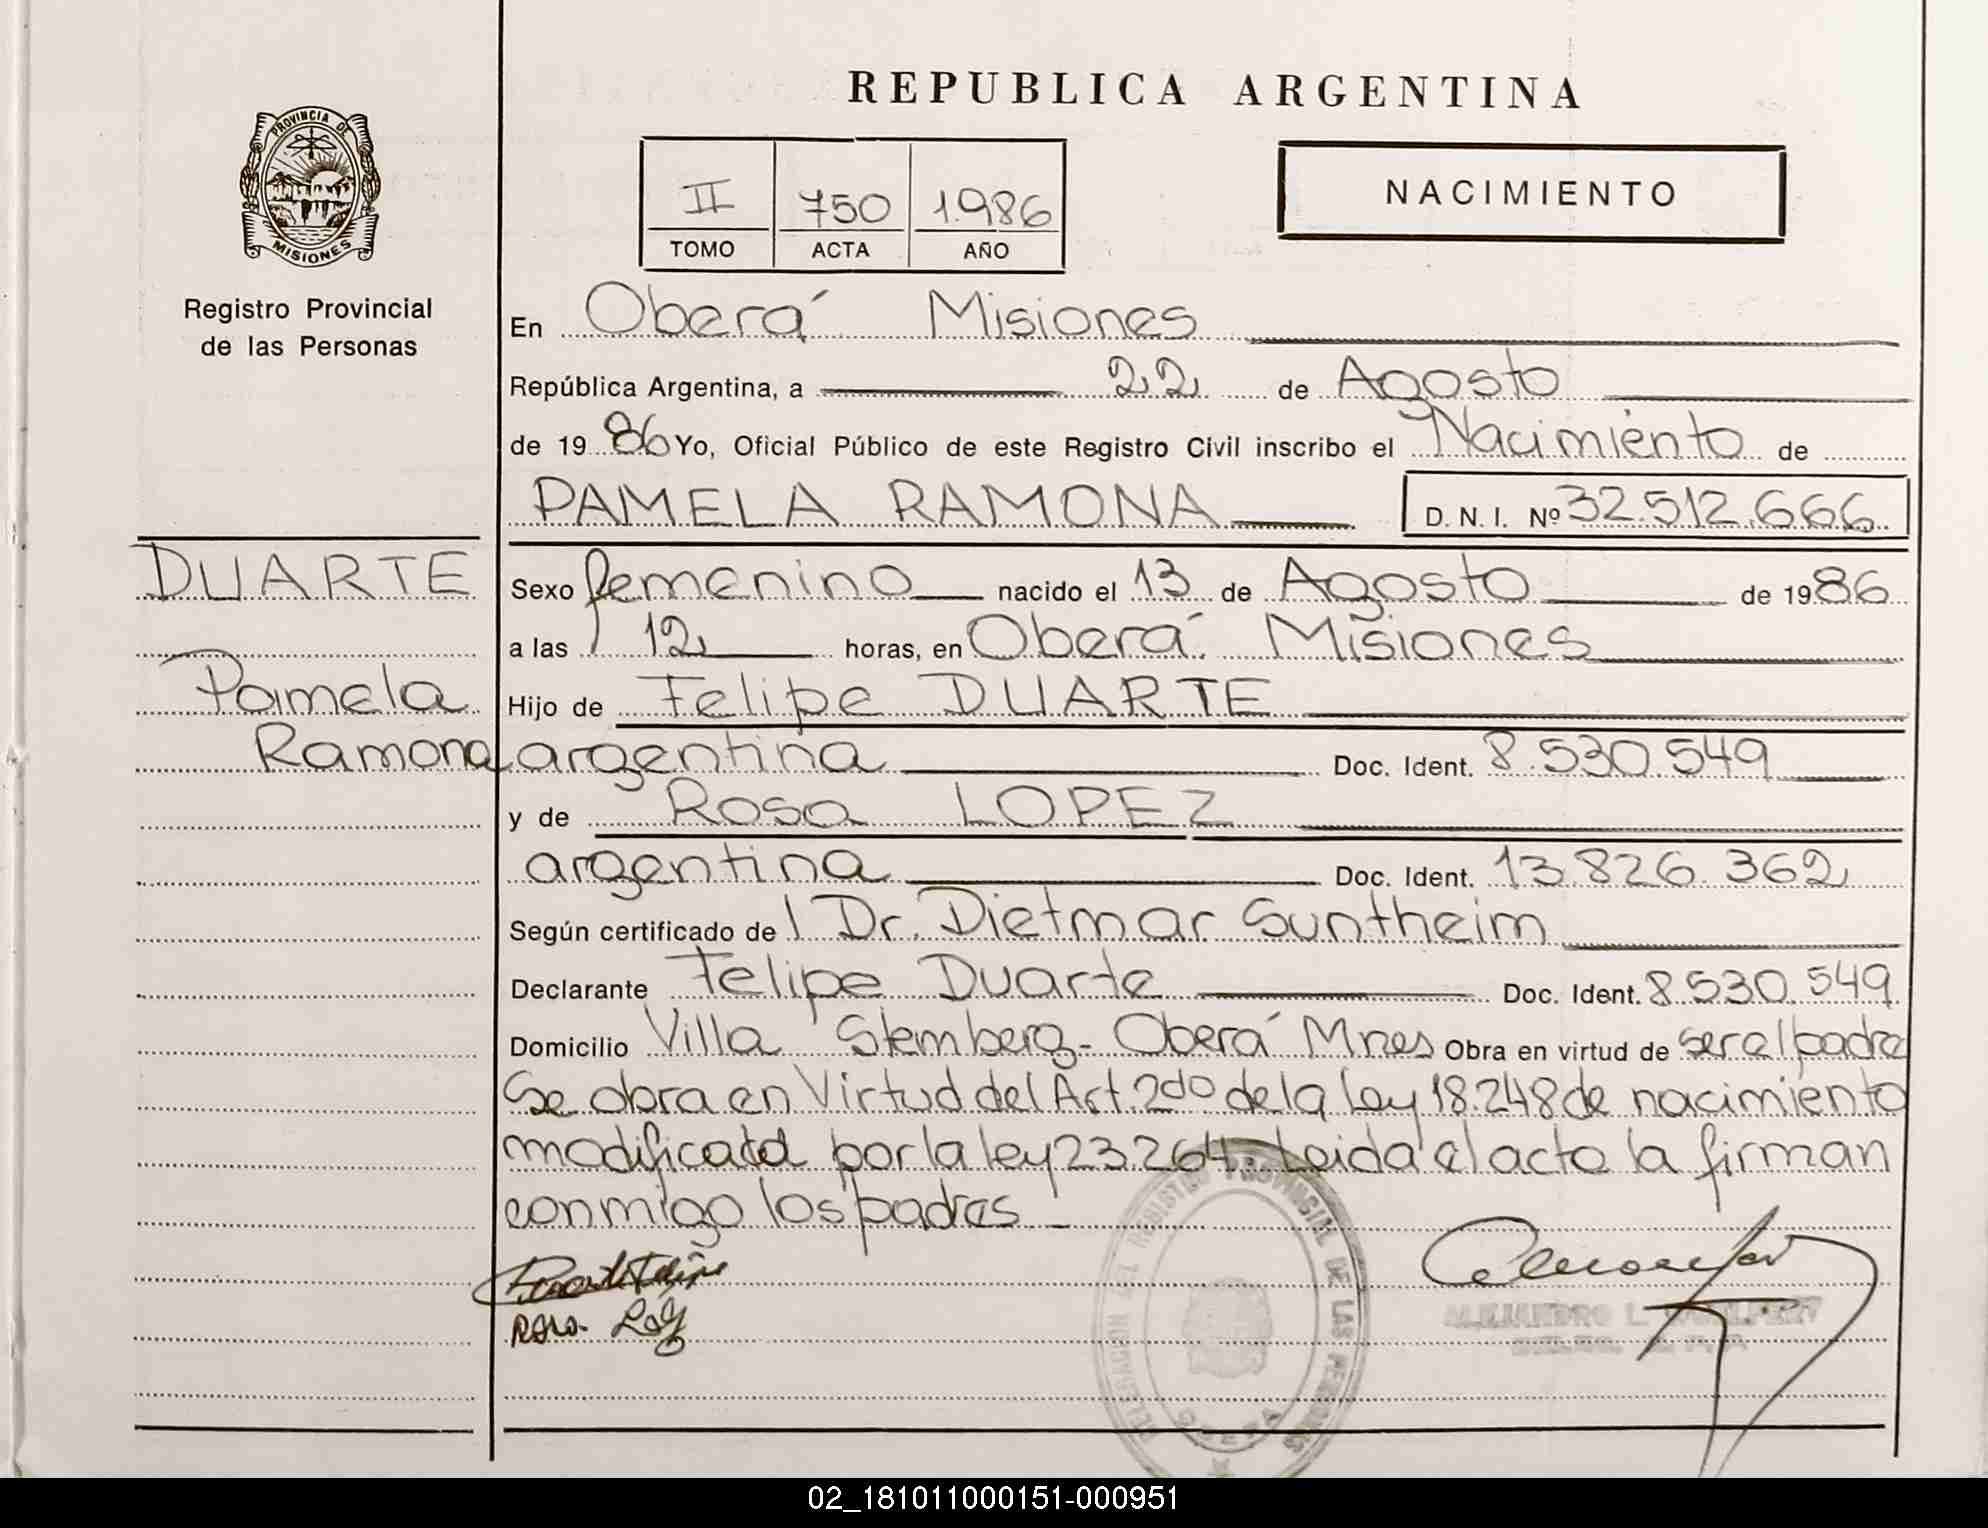 REPUBLICA ARGENTINA
PROVINCIA DE
MISIONES
II 750 1986
TOMO ACTA AÑO
NACIMIENTO
Registro Provincial
de las Personas
En Oberá Misiones
República Argentina, a 22 de Agosto
de 1986 Yo, Oficial Público de este Registro Civil inscribo el Nacimiento de
PAMELA RAMONA D.N.I. Nº 32.512.666
DUARTE
Pamela
Ramona
Sexo femenino nacido el 13 de Agosto de 1986
a las 12 horas, en Oberá Misiones
Hijo de Felipe DUARTE
argentina Doc. Ident. 8.530.549
y de Rosa LOPEZ
argentina Doc. Ident. 13.826.362
Según certificado de Dr. Dietmar Suntheim
Declarante Felipe Duarte Doc. Ident. 8.530.549
Domicilio Villa Stemberg - Oberá Mnes Obra en virtud de ser el padre
Se obra en Virtud del Art. 2do de la Ley 18.248 de nacimiento
modificada por la ley 23.264. Leida el acta la firman
conmigo los padres
REGISTRO PROVINCIAL DE LAS PERSONAS
ALEJANDRO L.
02_181011000151-000951